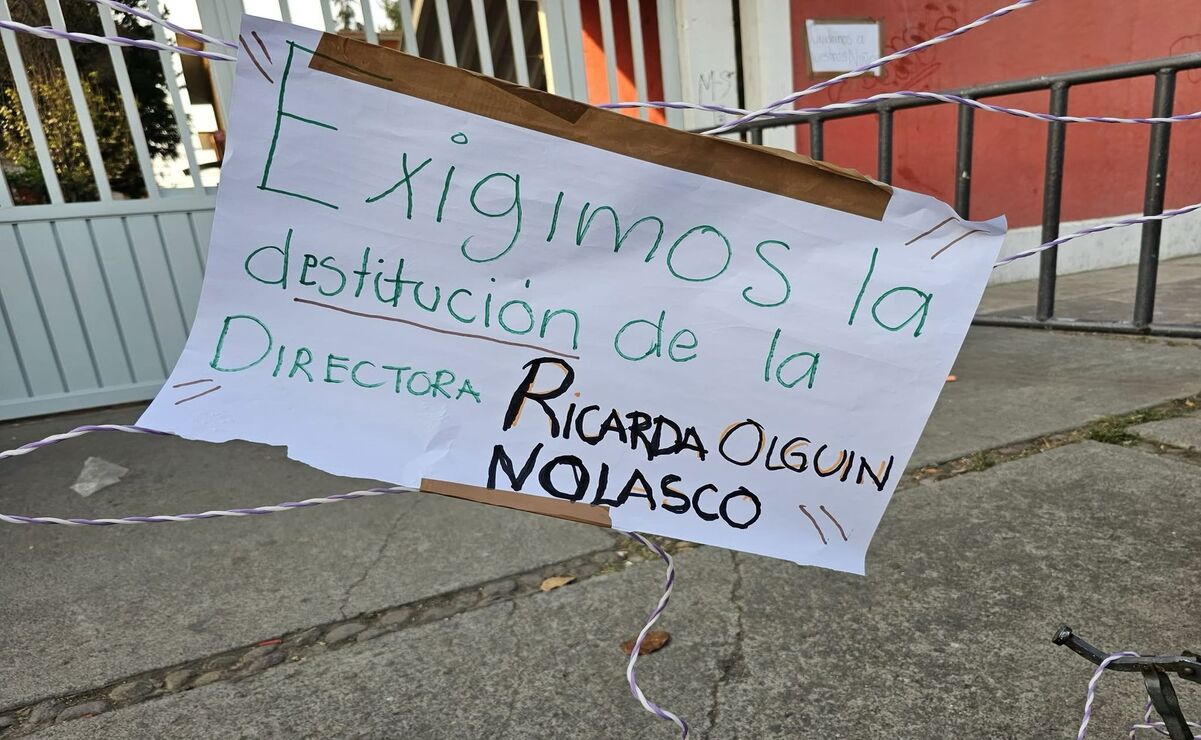 Exigimos la
destitución de la
DIRECTORA RICARDA OLGUIN
NOLASCO